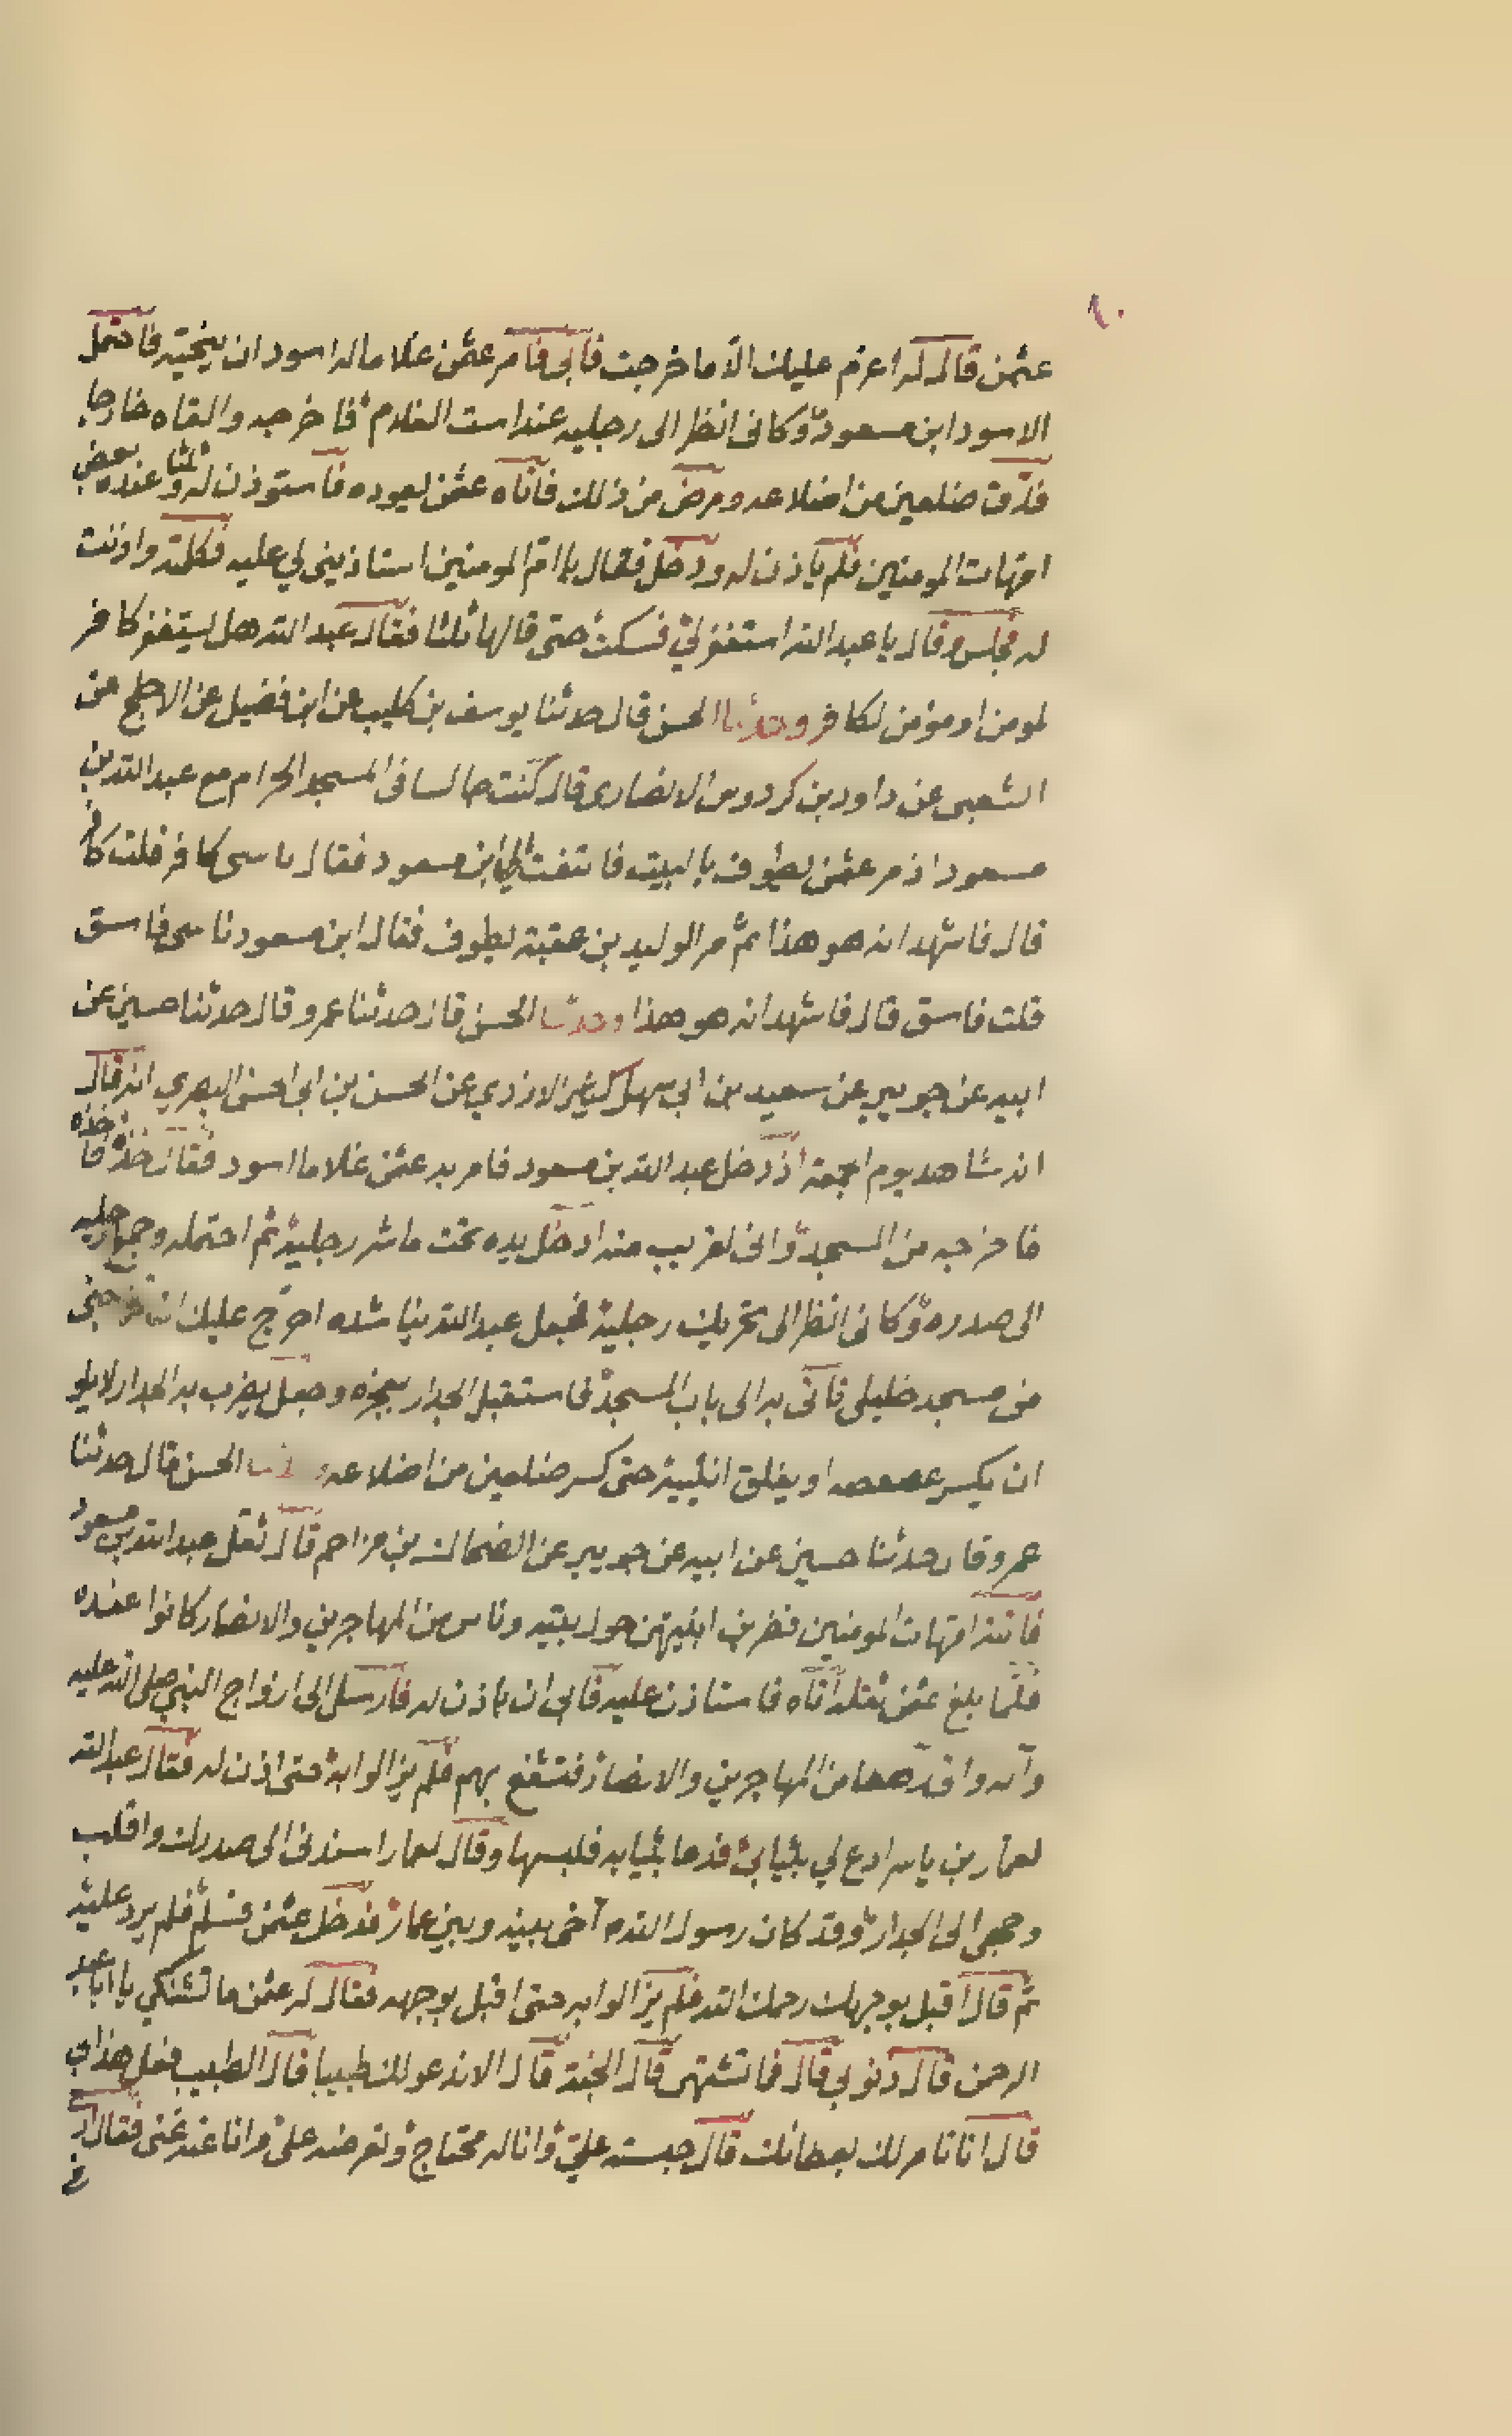 ١٠
عثمن قال له اعزم عليك الا ما خرجت فابى فامر عثمن غلاما له اسود ان ينحيه فاحتمل
الاسود ابن مسعود وكانى انظر الى رجليه عند است الغلام فاخرجه والقاه خارجا
فدقت ضلعين من اضلاعه ومرض من ذلك فاتاه عثمن ليعوده فاستوذن له وعنده بعض
امهات المومنين فلم ياذن له ودخل فقال يا ام المومنين استاذنينى لي عليه فكلمته واذنت
له فجلس وقال يا عبد الله استغفر لي فسكت حتى قالها ثلثا فقال عبد الله هل يستغفر كافر
لمومن او مؤمن لكافر وحدثنا الحسن قال حدثنا يوسف بن كليب عن ابن فضيل عن الاجلح عن
الشعبى عن داود بن كردوس الانصارى قال كنت جالسا فى المسجد الحرام مع عبد الله بن
مسعود اذ مر عثمن يطوف بالبيت فالتفت الي ابن مسعود فقال ما سى كافر قلت كافر
قال فاشهد انه هو هذا ثم مر الوليد بن عقبة يطوف فقال ابن مسعود ما سى فاسق
قلت فاسق قال فاشهد انه هو هذا وحدثنا الحسن قال حدثنا عمرو قال حدثنا حسين عن
ابيه عن جويبر عن سعيد بن ابي سهل الازدي عن الحسن بن ابى الحسن البصري انه قال
انه شاهد يوم الجمعة اذ دخل عبد الله بن مسعود فامر به عثمن غلاما اسود فقال خذه فاخذه
فاخرجه من المسجد وانى لقريب منه ادخل يده تحت رجليه ثم احتمله وجمع رجليه
الى صدره وكانى انظر الى تحريك رجليه فجعل عبد الله يناشده احرج عليك ان تخرجنى
من مسجد خليلى فاتى به الى باب المسجد فاستقبل الجدار بعجزه وجعل يضرب به الجدار لا يلو
ان يكسر عصعصه او يفلق انثييه حتى كسر ضلعين من اضلاعه الحسن قال حدثنا
عمرو قال حدثنا حسين عن ابيه عن جويبر عن الضحاك بن مزاحم قال ثقل عبد الله بن مسعود
فاتته امهات المومنين فضربن ابنيتهن حول بيته وناس من المهاجرين والانصار كانوا عنده
فلما بلغ عثمن ثقله اتاه فاستاذن عليه فابى ان ياذن له فارسل الى ازواج النبي صلى الله عليه
وآله من المهاجرين والانصار فتشفع بهم فلم يزالوا به حتى اذن له فقال عبد الله
لعمار بن ياسر ادع لي بثيابي فدعا بثيابه فلبسها وقال لعمار اسندنى الى صدرك واقلب
وجهى الى الجدار وقد كان رسول الله آخى بينه وبين عمار فدخل عثمن فسلم فلم يرد عليه
ثم قال اقبل بوجهك رحمك الله فلم يزالوا به حتى اقبل بوجهه فقال له عثمن ما تشتكي يا ابا عبد
الرحمن قال ذنوبي قال فما تشتهى قال الجنة قال الا ندعو لك طبيبا قال الطبيب فعل هذا بى
قال انا نامر لك بعطائك قال حبسته علي وانا له محتاج وتعرضه علي وانا عنه غنى فقال